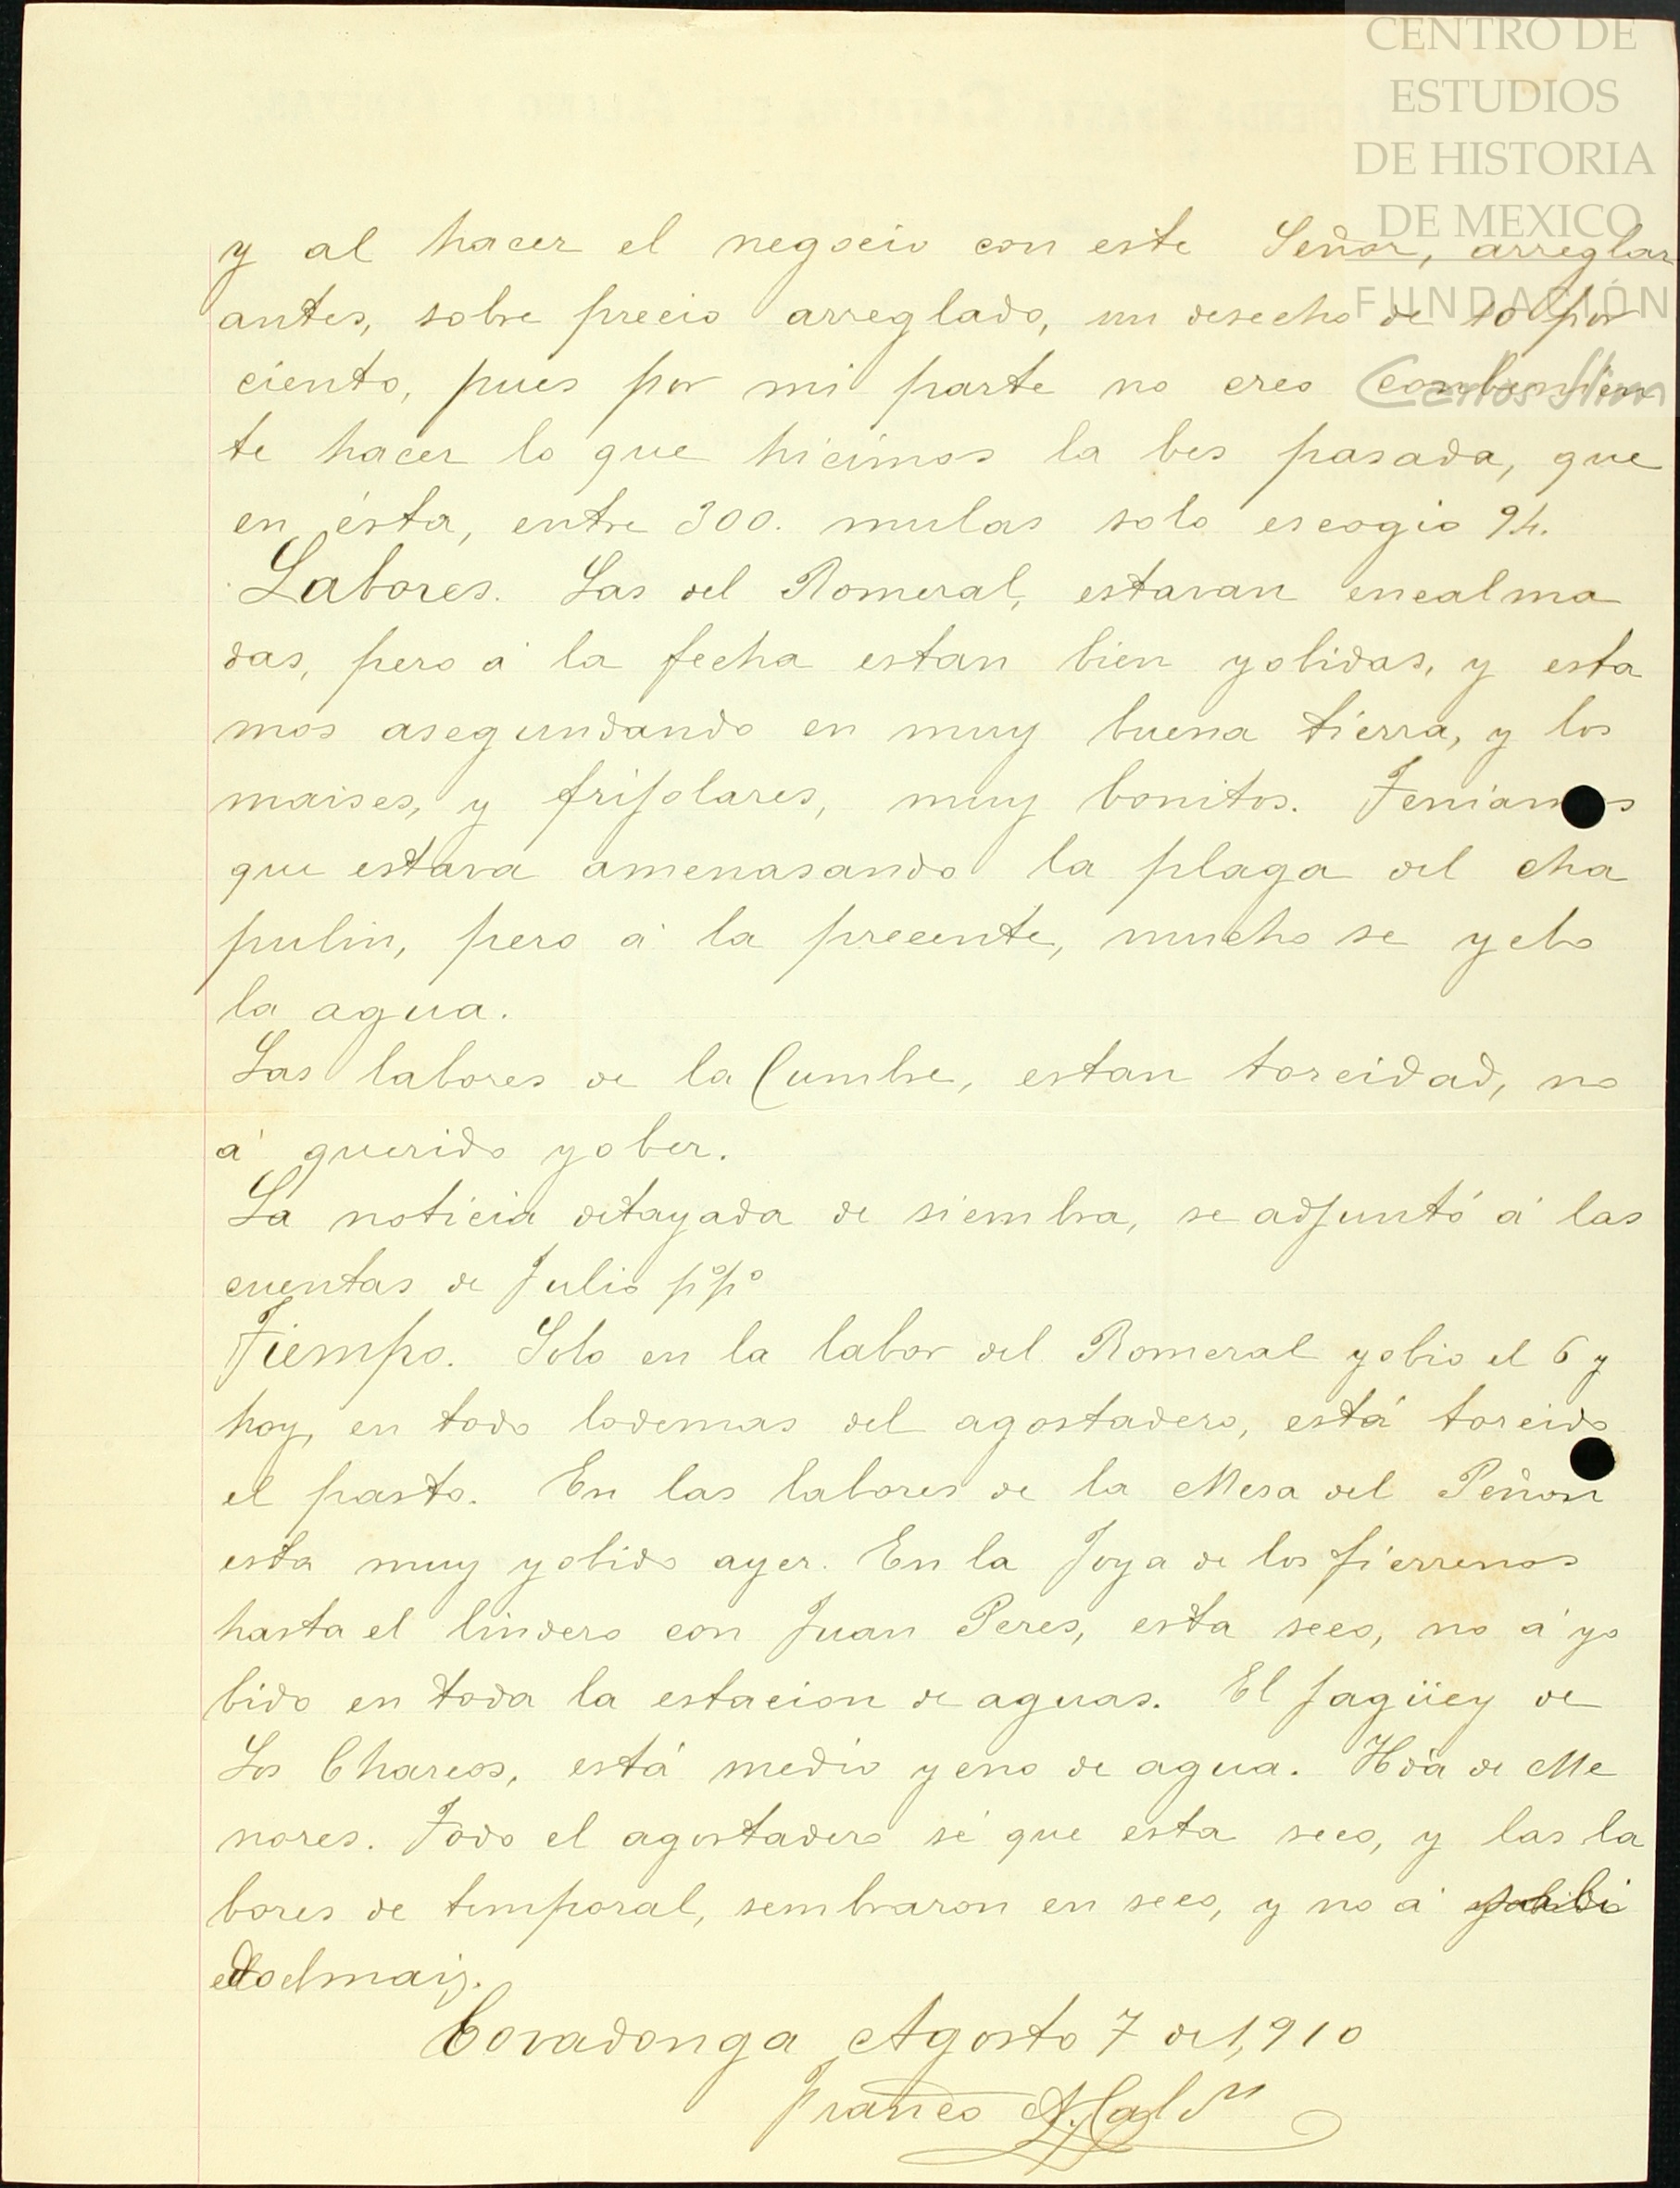 CENTRO DE
ESTUDIOS
DE HISTORIA
DE MEXICO
FUNDACIÓN
Carlos Slim
y al hacer el negocio con este Señor, arreglar
antes, sobre precio arreglado, un desecho de 10 por
ciento, pues por mi parte no creo conbenien
te hacer lo que hicimos la bes pasada, que
en ésta, entre 300. mulas solo escogio 94.
Labores. Las del Romeral, estavan encalma
das, pero á la fecha estan bien yobidas, y esta
mos asegundando en muy buena tierra, y los
maises, y frijolares, muy bonitos. Teniamos
que estava amenasando la plaga del cha
pulin, pero á la precente, mucho se yebo
la agua.
Las labores de la Cumbre, estan torcidad, no
á querido yober.
La noticia detayada de siembra, se adjuntó á las
cuentas de Julio p°p°
Tiempo. Solo en la labor del Romeral yobio el 6 y
hoy, en todo lodemas del agostadero, está torcido
el pasto. En las labores de la Mesa del Peñon
esta muy yobido ayer. En la Joya de los fierrenos
hasta el lindero con Juan Peres, esta seco, no á yo
bido en toda la estacion de aguas. El Jagüey de
Los Charcos, está medio yeno de agua. Hda de Me
nores. Todo el agostadero sé que esta seco, y las la
bores de temporal, sembraron en seco, y no á
el maiz.
Covadonga Agosto 7 de 1,910
Franco